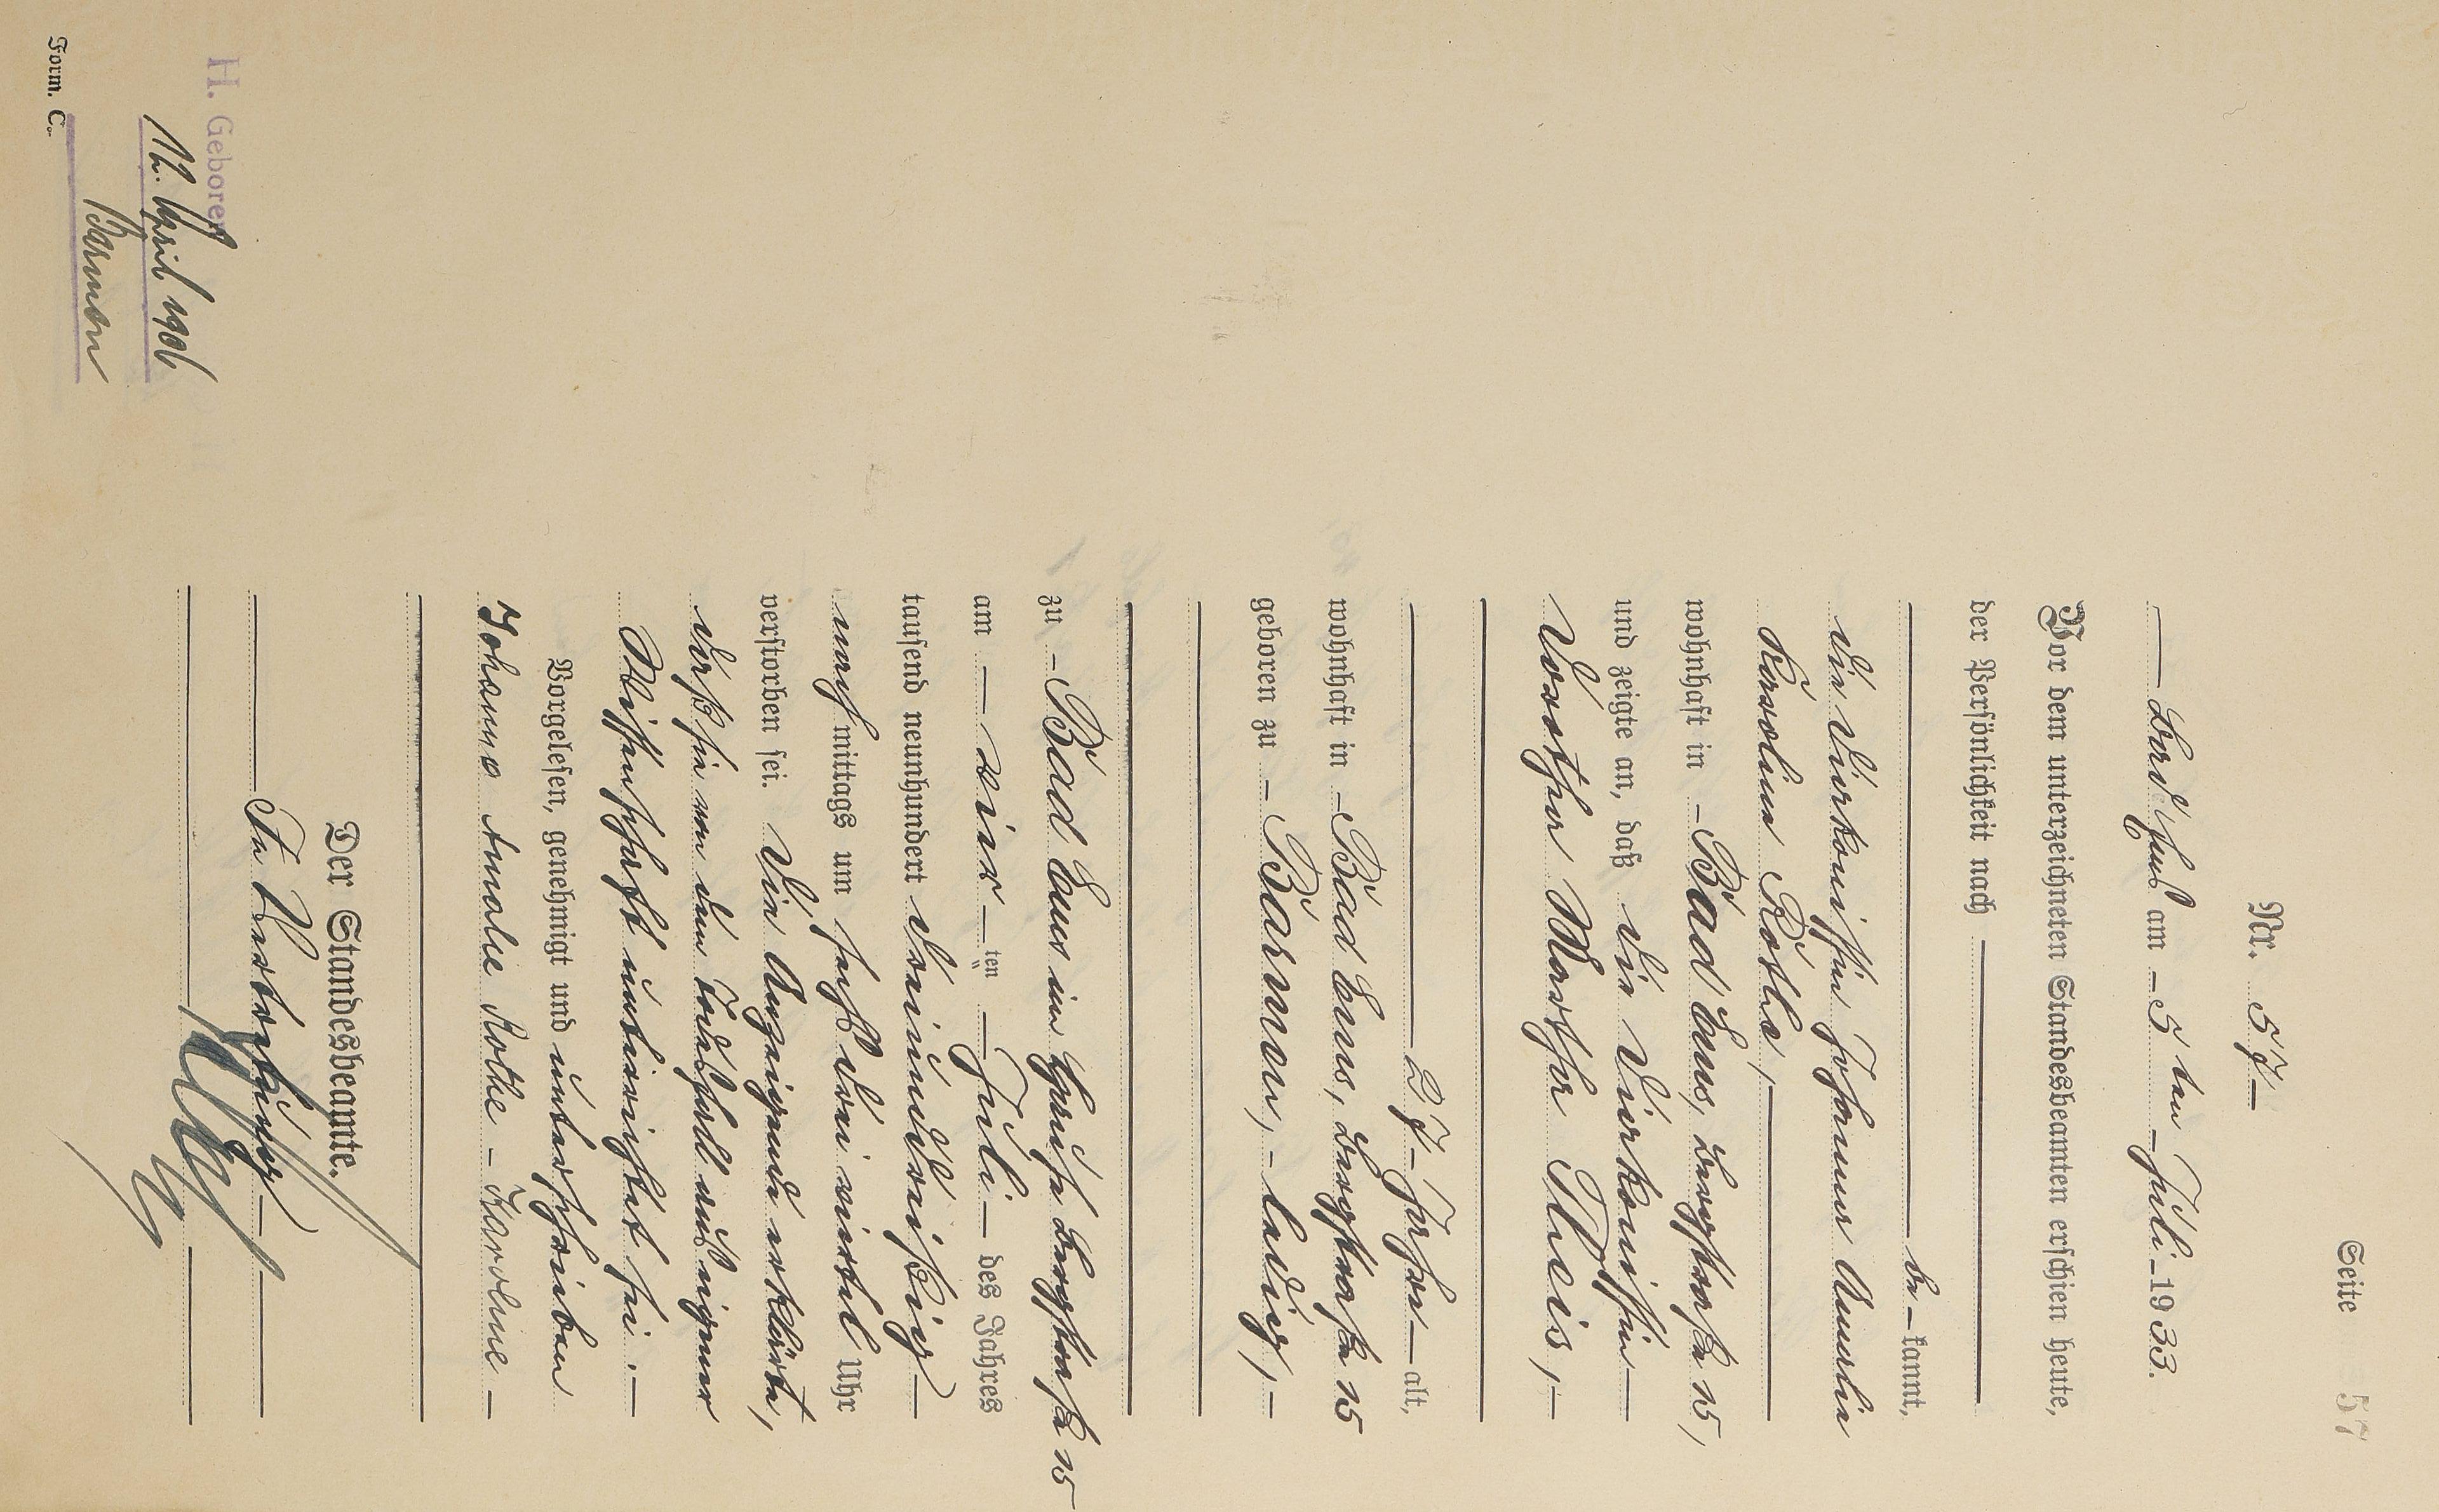 Seite 57
Nr. 57
Bad Ems am 5 ten Juli 1933.
Vor dem unterzeichneten Standesbeamten erschien heute,
der Persönlichkeit nach
be kannt,
die Diakonissin Johanne Amalie
Karoline Rothe,
wohnhaft in Bad Ems, Bergstraße 15,
und zeigte an, daß die Diakonissin
Martha Theis,
27 Jahre alt,
wohnhaft in Bad Ems, Bergstraße 15
geboren zu Barmen, ledig,
zu Bad Ems im Hause Bergstraße 15
am vier ten Juli des Jahres
tausend neunhundert dreiunddreißig
nach mittags um sechs drei viertel Uhr
verstorben sei. Die Anzeigende erklärte,
daß sie von dem Todesfall aus eigener
Wissenschaft unterrichtet sei.
Vorgelesen, genehmigt und unterschrieben
Johanne Amalie Rothe Karoline
Der Standesbeamte.
In Vertretung
H. Geboren
16. April 1906
Barmen
Form. C.